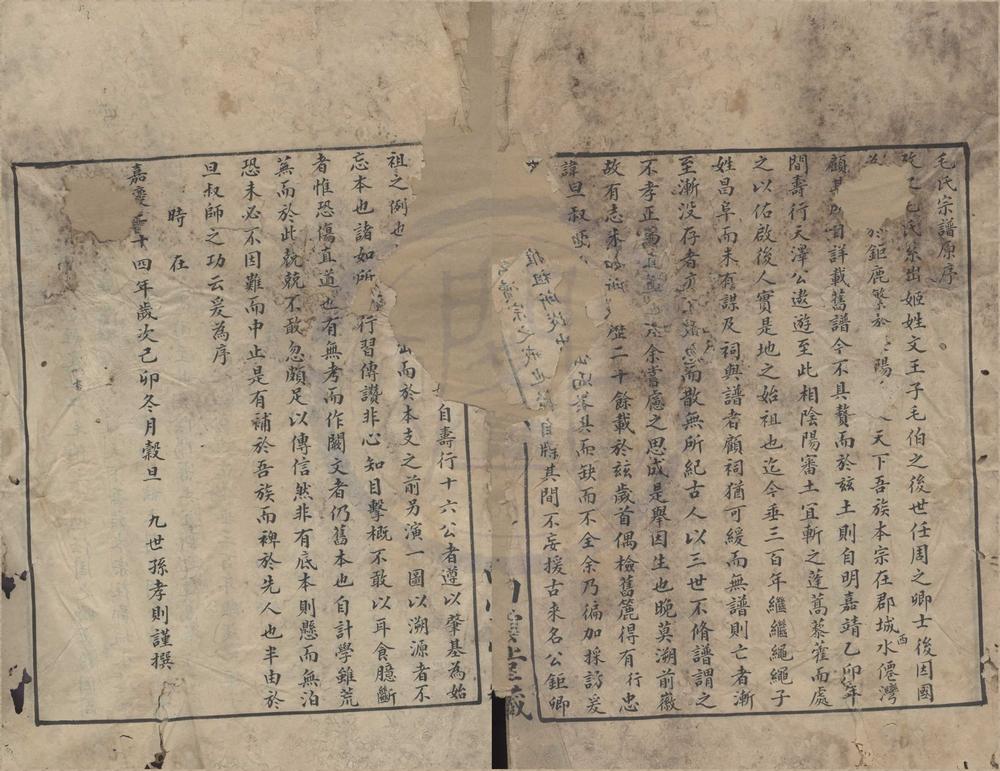 毛氏宗譜原序
毛氏系出姬姓文王子毛伯之後世任周之卿士後因國
於鉅鹿繁於 陽 天下吾族本宗在郡城西水僊灣
顧 自詳載舊譜今不具贅而於茲土則自明嘉靖乙卯年
間壽行天澤公遨遊至此相陰陽審土宜斬之蓬蒿藜藿而處
之以佑啟後人實是地之始祖也迄今垂三百年繼繼繩繩子
姓昌阜而未有謀及祠與譜者顧祠猶可緩而無譜則亡者漸
至漸沒存者亦 而散無所紀古人以三世不脩譜謂之
不孝正為 余嘗慮之思成是舉因生也晚莫溯前徽
故有志未 二十餘載於茲歲首偶檢舊簏得有行忠
諱旦叔 其而缺而不全余乃徧加採訪爰
目牒其間不妄援古來名公鉅卿
祖之例也 自壽行十六公者遵以肇基為始
忘本也諸如所 而於本支之前另演一圖以溯源者不
者惟恐傷直道也有無考而作闕文者仍舊本也自計學雖荒
行習傳讚非心知目擊概不敢以耳食臆斷
蕪而於此兢兢不敢忽頗足以傳信然非有底本則懸而無泊
恐未必不因難而中止是有補於吾族而裨於先人也半由於
旦叔師之功云爰為序
時在
嘉慶二十四年歲次己卯冬月穀旦 九世孫孝則謹撰